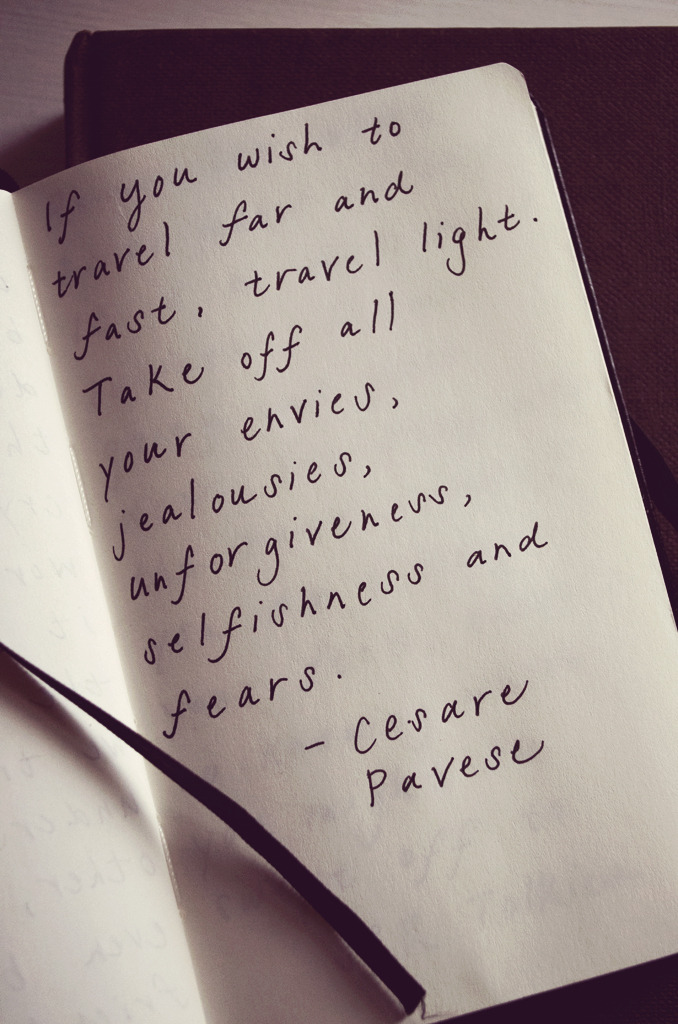 If you wish to
travel far and
fast, travel light.
Take off all
your envies,
jealousies,
unforgiveness,
selfishness and
fears.
- Cesare
Pavese